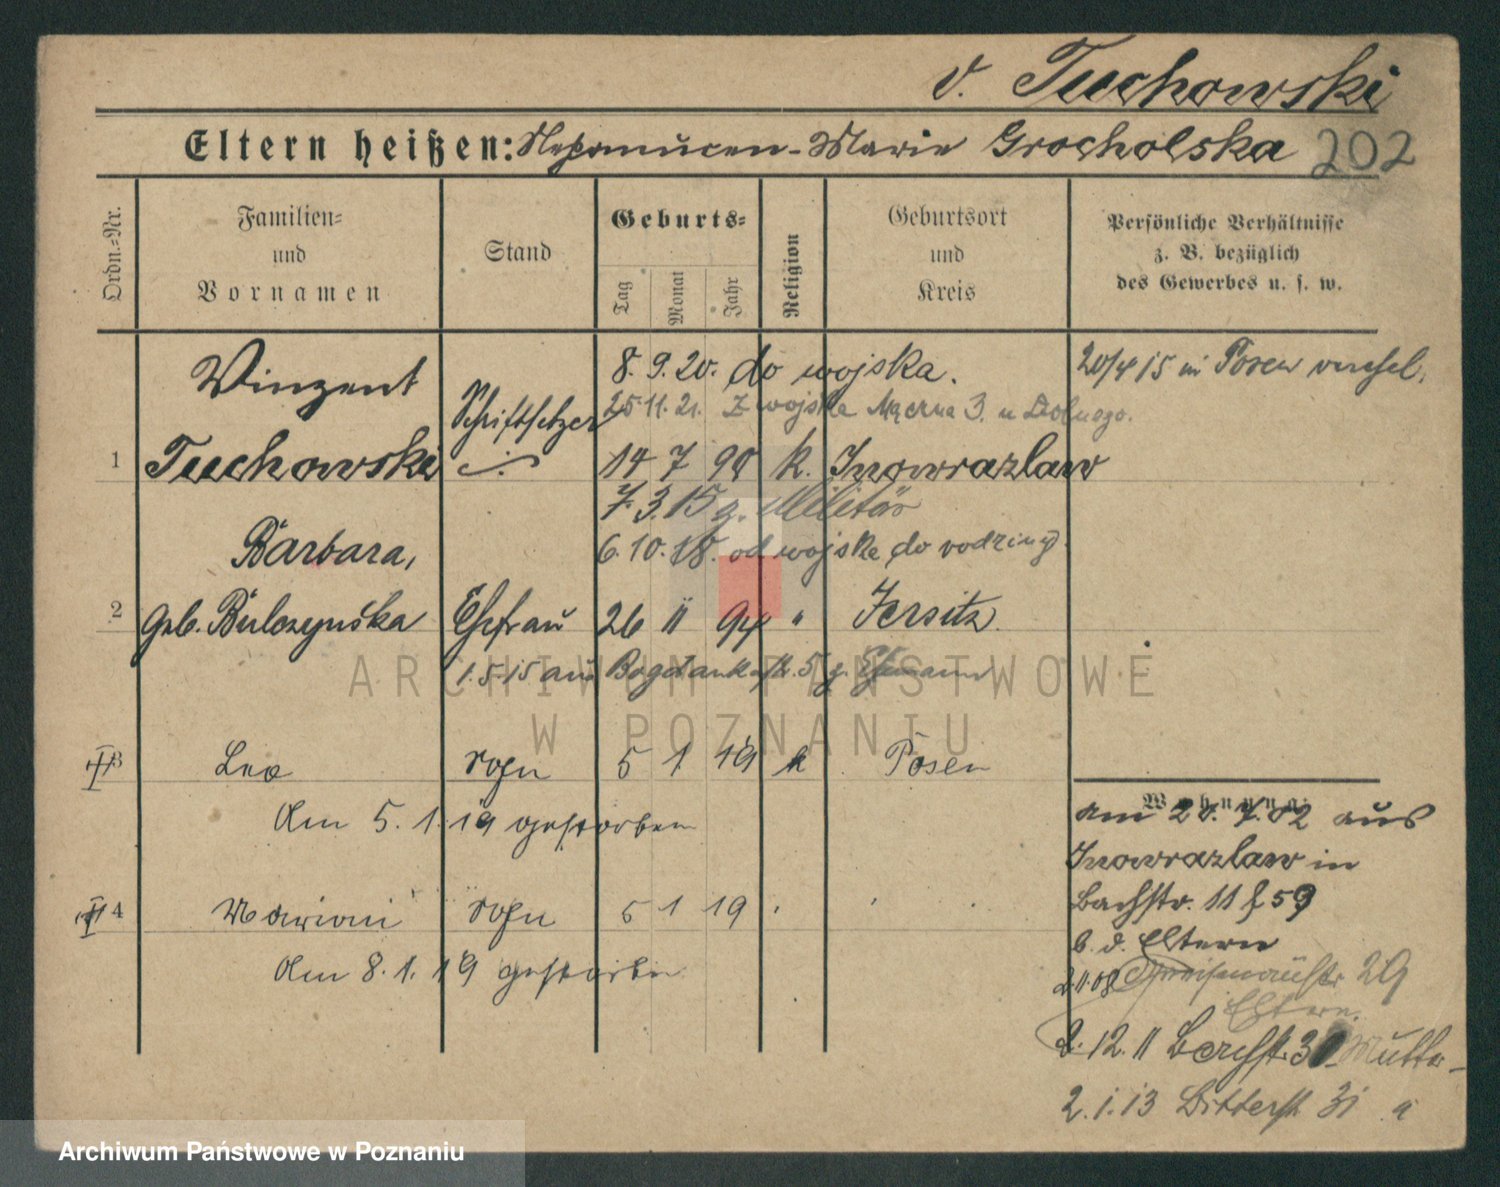 v. Tuchowski
Eltern heißen: Nepomucen - Marie Grocholska 202
Ordn.-Nr.
Familien=
und
Vornamen
Stand
Geburts=
Tag
Monat
Jahr
Religion
Geburtsort
und
Kreis
Persönliche Verhältnisse
z. B. bezüglich
des Gewerbes u. s. w.
8. 9. 20. do wojska.
20/4 15 in Posen
Vinzent
25.11.21. Z wojska
Schriftsetzer
1 Tuchowski 14 7 90 k. Inowrazlaw
7. 3. 15 z. Militär
Barbara,
6. 10. 18. od wojska do rodziny.
2 geb. Bulczyńska Ehefrau 26 11 94 " Jersitz
1.5.15 aus Bogdankastr. 5 z. Ehemann
3 Leo Sohn 5 1 19 k Posen
Am 5. 1. 19 gestorben
4 Marian Sohn 5 1 19
Am 8. 1. 19 gestorben
Wohnung:
am 20. 4. 02 aus
Inowrazlaw in
Bachstr. 11 f 59
b. d. Eltern
2.11.08 29
Eltern.
2. 12. 11 Bachstr. 30 Mutter
2. 1. 13 Bitterstr 31
ARCHIWUM PAŃSTWOWE
W POZNANIU
Archiwum Państwowe w Poznaniu